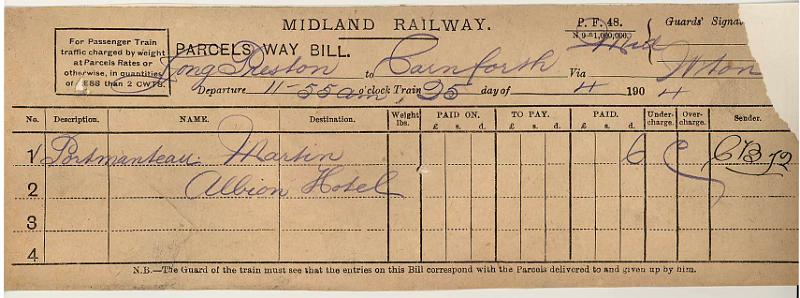 MIDLAND RAILWAY.
P. F. 48.
N 9—1,000,000.
Guards' Signa
For Passenger Train
traffic charged by weight
at Parcels Rates or
otherwise, in quantities
of LESS than 2 CWTS.
PARCELS WAY BILL.
Mid
Long Preston to Carnforth Via Wton
Departure 11-55 am o'clock Train, 25 day of 4 190 4
No. Description. NAME. Destination. Weight lbs. PAID ON. TO PAY. PAID. Under-charge. Over-charge. Sender.
£ s. d. £ s. d. £ s. d.
1 Portmanteau. Martin 6
2 Albion Hotel
3
4
N.B.—The Guard of the train must see that the entries on this Bill correspond with the Parcels delivered to and given up by him.